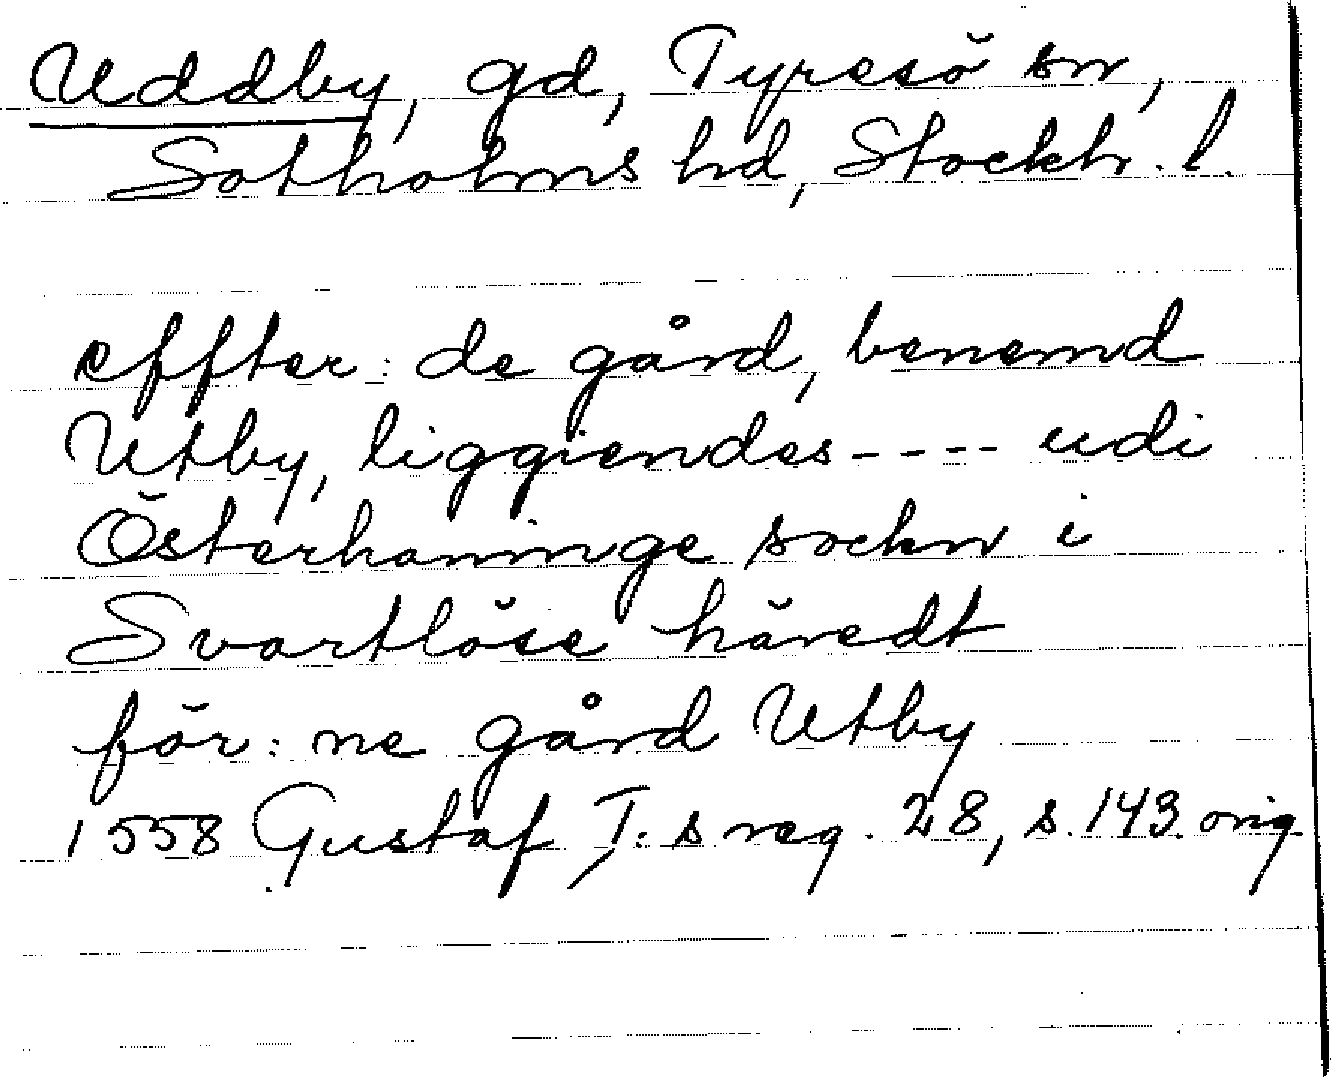 Uddby, gd, Tyresö sn,
Sotholms hd, Stockh. l.
effter: de gård, benemd
Utby, liggiendes ---- udi
Österhaninge sockn i
Svartlöse häredt
för: ne gård Utby
1558 Gustaf I: s reg. 28, s. 143 orig